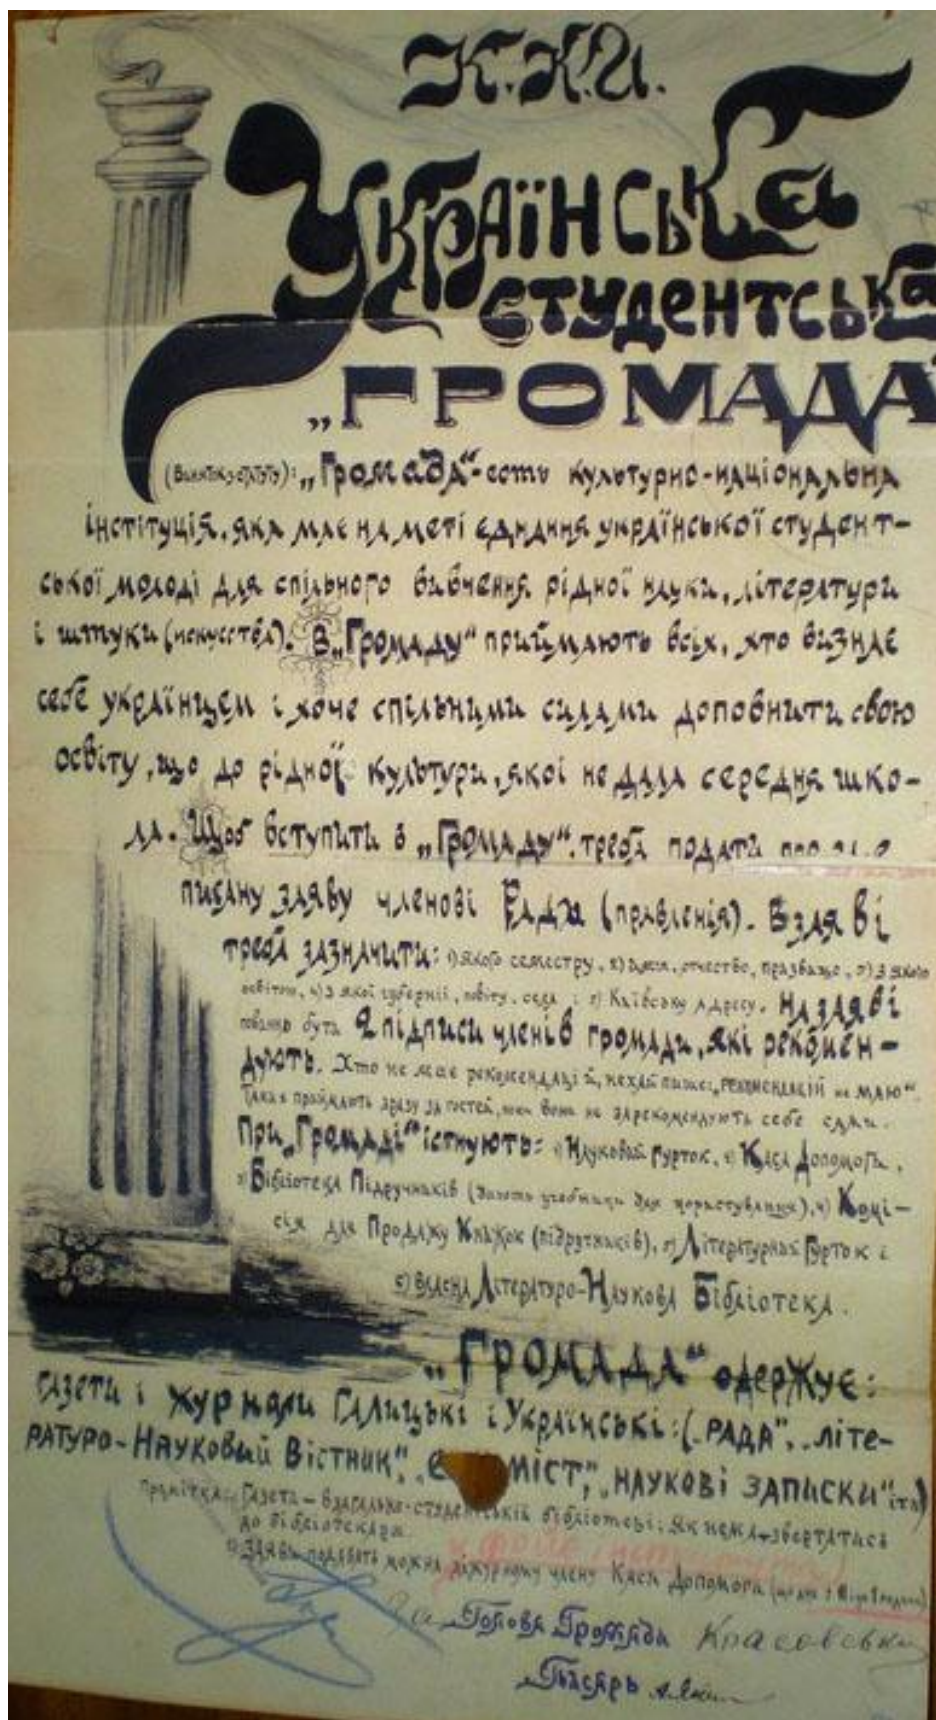 К.К.И.
Українська
студентська
„ГРОМАДА“
(Виняток з статуту): „Громада“-есть культурно-національна
інституція, яка має на меті єднання української студент-
ської молоді для спільного вивчення рідної науки, літератури
і штуки (искусства). В „Громаду“ приймають всіх, хто визнає
себе українцем і хоче спільними силами доповнити свою
освіту, що до рідної культури, якої не дала середня шко-
ла. Щоб вступити в „Громаду“, треба подати про це
писану заяву членові Ради (правленія). В заяві
треба зазначити: 1) якого семестру, 2) имя, отчество, празвище, 3) з якою
освітою, 4) з якої губернії, повіту, села і 5) Київську адресу. На заяві
повинно бути 2 підписи членів громади, які рекомен-
дують. Хто не має рекомендації й, нехай пише: „рекомендацій не маю“.
Таких приймають зразу за гостей, поки вони не зарекомендують себе сами.
При „Громаді“ істнують: 1) Науковий Гурток, 2) Каса Допомоги,
3) Бібліотека Підручників (дають учебники для користування), 4) Комі-
сія для Продажу Книжок (підручників), 5) Літературний Гурток і
6) Власна Літературо-Наукова Бібліотека.
„ГРОМАДА“ одержує:
газети і журнали Галицькі і Українські: („РАДА“, „літе-
ратуро-Науковий Вістник“, „міст“, „наукові записки“ іт.)
Примітка: Газети – взагально-студентській бібліотеці. Як нема, звертатись
до бібліотекаря.
Заяви подавать можна діжурному члену Каси Допомоги
За Голова Громади Красовський
Писарь